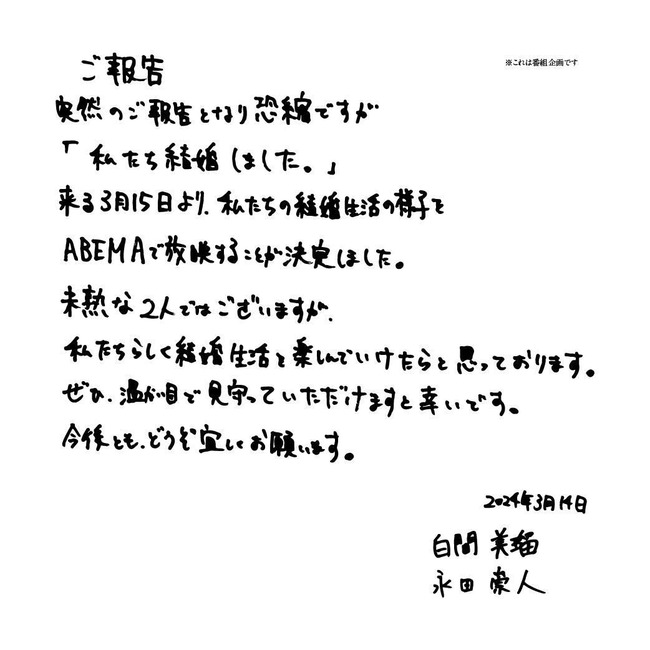 ※これは番組企画です
ご報告
突然のご報告となり恐縮ですが
「私たち結婚しました。」
来る3月15日より、私たちの結婚生活の様子を
ABEMAで放映することが決定しました。
未熟な2人ではございますが、
私たちらしく結婚生活を楽しんでいけたらと思っております。
ぜひ、温か目で見守っていただけますと幸いです。
今後とも、どうぞ宜しくお願います。
2024年3月14日
白間 美瑠
永田 崇人